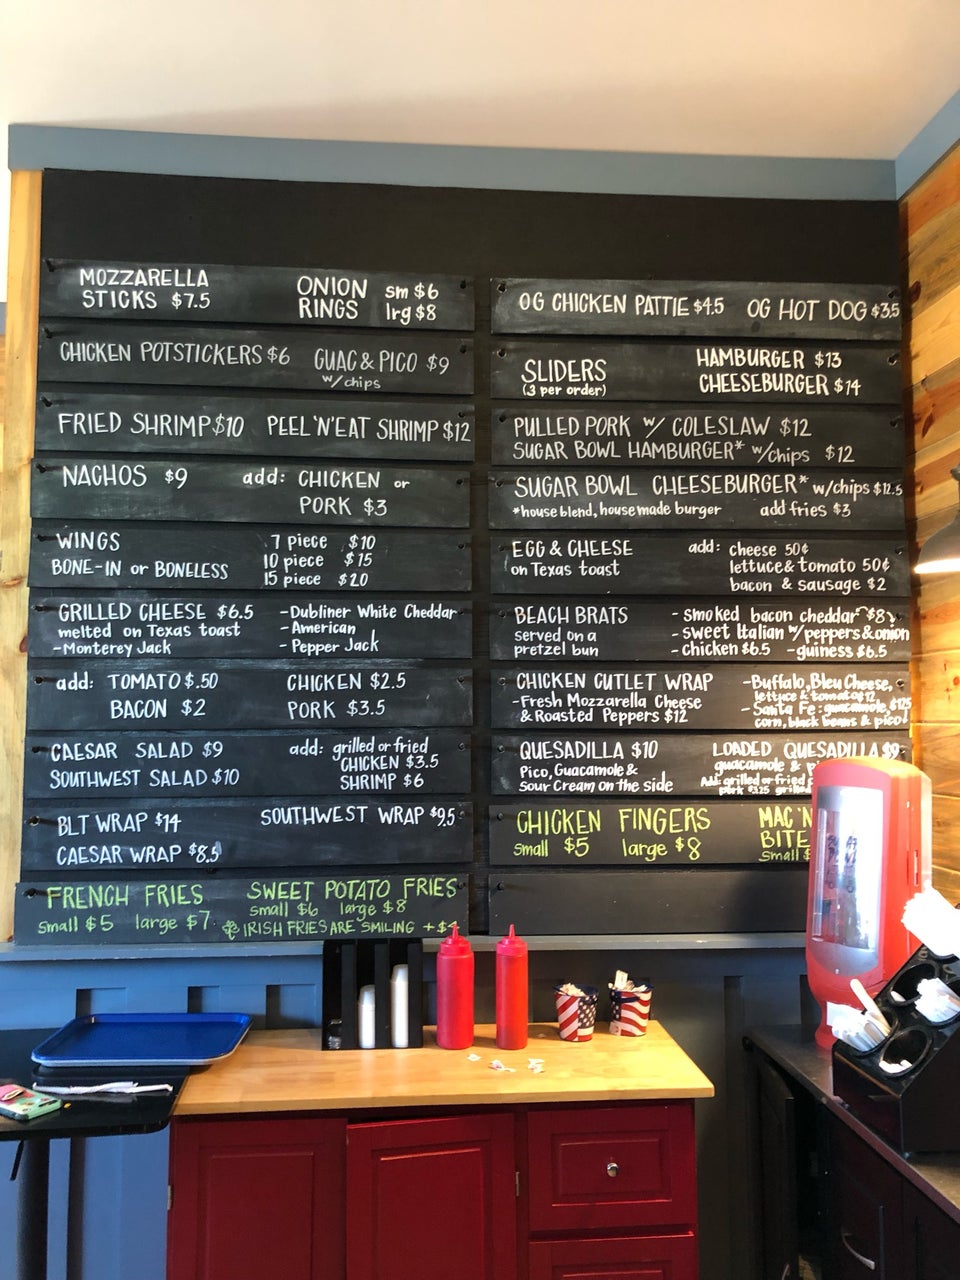 MOZZARELLA
STICKS $7.5
ONION
RINGS
sm $6
lrg $8
CHICKEN POTSTICKERS $6
GUAC & PICO $9
w/chips
FRIED SHRIMP $10
PEEL'N'EAT SHRIMP $12
NACHOS $9
add: CHICKEN or
PORK $3
WINGS
BONE-IN or BONELESS
7 piece $10
10 piece $15
15 piece $20
GRILLED CHEESE $6.5
melted on Texas toast
-Monterey Jack
-Dubliner White Cheddar
-American
-Pepper Jack
add: TOMATO $.50
BACON $2
CHICKEN $2.5
PORK $3.5
CAESAR SALAD $9
SOUTHWEST SALAD $10
add: grilled or fried
CHICKEN $3.5
SHRIMP $6
BLT WRAP $14
SOUTHWEST WRAP $9.5
CAESAR WRAP $8.5
FRENCH FRIES
small $5 large $7
SWEET POTATO FRIES
small $6 large $8
IRISH FRIES ARE SMILING +$4
OG CHICKEN PATTIE $4.5
OG HOT DOG $3.5
SLIDERS
(3 per order)
HAMBURGER $13
CHEESEBURGER $14
PULLED PORK w/ COLESLAW $12
SUGAR BOWL HAMBURGER* w/chips $12
SUGAR BOWL CHEESEBURGER* w/chips $12.5
*house blend, house made burger
add fries $3
EGG & CHEESE
on Texas toast
add: cheese 50¢
lettuce & tomato 50¢
bacon & sausage $2
BEACH BRATS
served on a
pretzel bun
- smoked bacon cheddar $8
- sweet Italian w/peppers & onion
- chicken $6.5 - guiness $6.5
CHICKEN CUTLET WRAP
-Fresh Mozzarella Cheese
& Roasted Peppers $12
-Buffalo, Bleu Cheese,
lettuce & tomato $12
-Santa Fe: guacamole,
corn, black beans & pico
QUESADILLA $10
Pico, Guacamole &
Sour Cream on the side
LOADED QUESADILLA $9
guacamole &
Add: grilled or fried
pork $3.25
CHICKEN FINGERS
small $5 large $8
MAC'N
BITE
small $